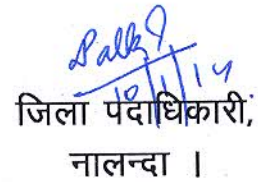 10/1/14
जिला पदाधिकारी,
नालन्दा ।